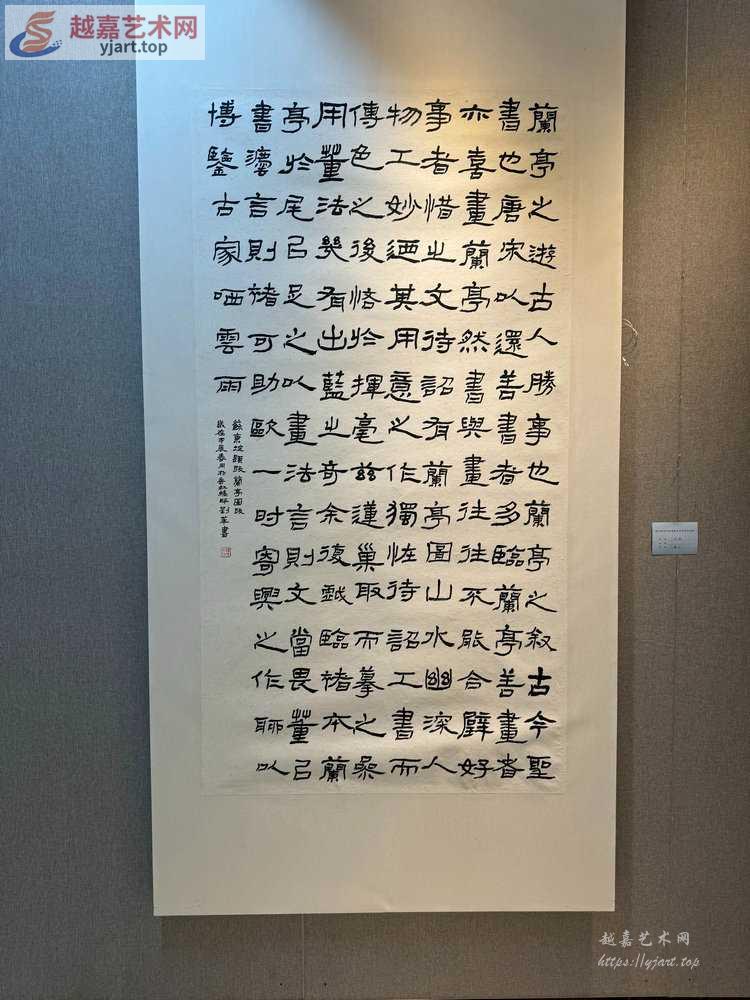 越嘉艺术网
yjart.top
蘭亭之遊古人勝事也蘭亭之叙古今聖
書也唐宋以還善書者多臨蘭亭善畫者
亦喜畫蘭亭然書與畫往往不能合璧好
事者惜之文待詔有蘭亭圖山水幽深人
物工妙迺其用意之作獨恠待詔工書而
傳色之後恡於揮毫兹蓮巢取而摹之叅
用董法幾有出藍之奇余復戲臨褚本蘭
亭於尾以足之以畫法言則文當畏董以
書灋言則褚可助歐一时寄興之作聊以
博鑒古家哂雲雨
題跋蘭亭圖跋
歲在甲辰春月於劉書
越嘉艺术网
https://yjart.top